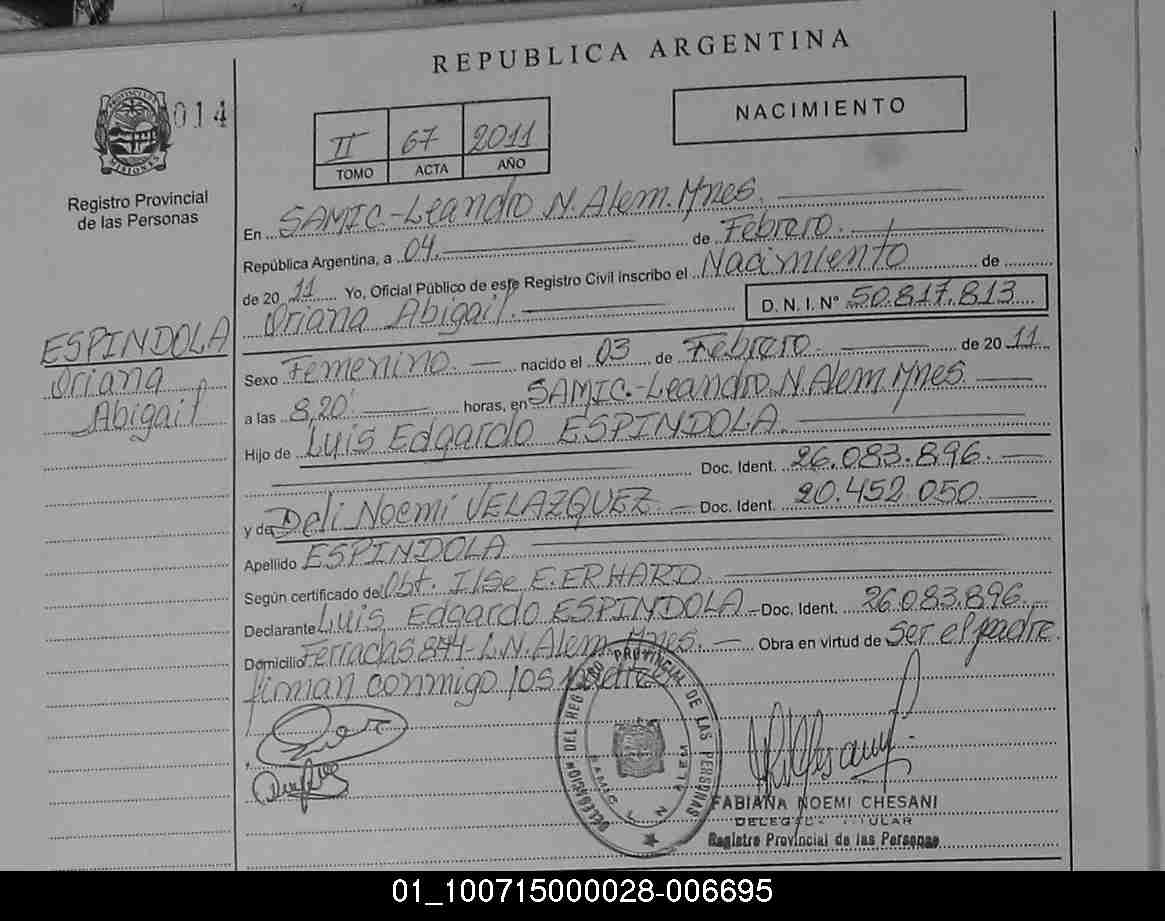 REPUBLICA ARGENTINA
014
NACIMIENTO
II 67 2011
TOMO ACTA AÑO
PROVINCIA DE MISIONES
Registro Provincial
de las Personas
ESPINDOLA
Oriana
Abigail
En SAMIC.-Leandro N. Alem. Mnes.
República Argentina, a 04. de Febrero.
de 2011 Yo, Oficial Público de este Registro Civil inscribo el Nacimiento de
Oriana Abigail. D. N. I. Nº 50.817.813
Sexo Femenino. nacido el 03 de Febrero. de 2011
a las 8,20' horas, en SAMIC.-Leandro N. Alem. Mnes.
Hijo de Luis Edgardo ESPINDOLA.
Doc. Ident. 26.083.896.
y de Deli Noemi VELAZQUEZ Doc. Ident. 20.452.050.
Apellido ESPINDOLA
Según certificado de Obt. Ilse E. ERHARD.
Declarante Luis Edgardo ESPINDOLA Doc. Ident. 26.083.896.
Domicilio Ferradas 844- L.N. Alem. Mnes. Obra en virtud de ser el padre.
firman conmigo los padres
DELEGACION DEL REGISTRO PROVINCIAL DE LAS PERSONAS
FABIANA NOEMI CHESANI
DELEGADA TITULAR
Registro Provincial de las Personas
01_100715000028-006695